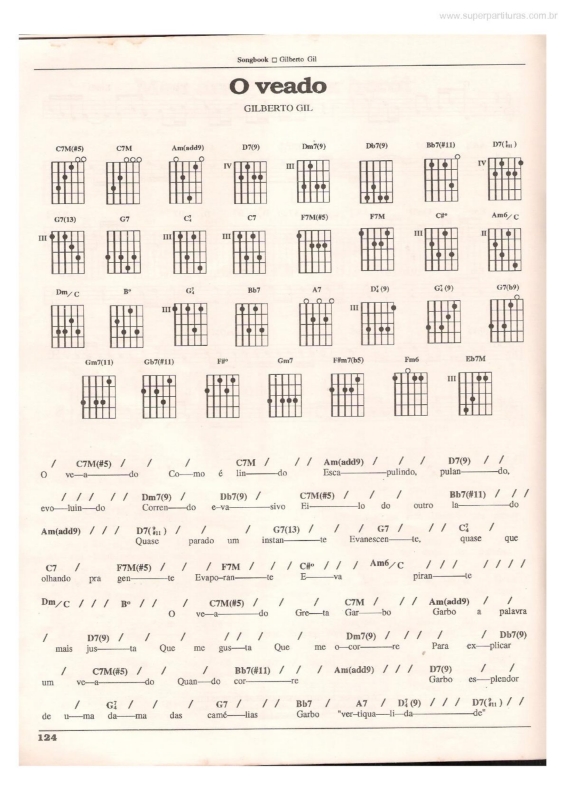 www.superpartituras.com.br
Songbook □ Gilberto Gil
O veado
GILBERTO GIL
C7M(#5) C7M Am(add9) D7(9) Dm7(9) Db7(9) Bb7(#11) D7(9 #11)
IV III IV
G7(13) G7 C7 4 C7 F7M(#5) F7M C#º Am6/C
III III III III II
Dm/C Bº G7 4 Bb7 A7 D7 4(9) G7 4(9) G7(b9)
III III
Gm7(11) Gb7(#11) F#º Gm7 F#m7(b5) Fm6 Eb7M
III
/ C7M(#5) / / / C7M / / / Am(add9) / / / D7(9) / /
O ve—a———do Co—mo é lin———do Esca———pulindo, pulan———do,
/ / / / / Dm7(9) / Db7(9) / C7M(#5) / / / Bb7(#11) / / /
evo—luin—do Corren———do e–va———sivo Ei———lo do outro la———do
Am(add9) / / / D7(9 #11) / / / G7(13) / / / G7 / / / C7 4 /
Quase parado um instan———te Evanescen———te, quase que
C7 / F7M(#5) / / / F7M / / / C#º / / / Am6/C / / / / / / /
olhando pra gen———te Evapo–ran———te E———va piran———te
Dm/C / / / Bº / / / C7M(#5) / / / C7M / / / Am(add9) /
O ve—a———do Gre—ta Gar———bo Garbo a palavra
/ D7(9) / / / / / / Dm7(9) / / / / Db7(9)
mais jus———ta Que me gus—ta Que me o–cor———re Para ex—plicar
/ C7M(#5) / / / Bb7(#11) / / / Am(add9) / / / D7(9) / /
um ve—a———do Quan—do cor———re Garbo es–plendor
/ G7 4 / / / G7 / / / Bb7 / A7 / D7 4(9) / / / D7(9 #11) / /
de u—ma da—ma das camé—lias Garbo "ver–tiqua—li—da———de"
124